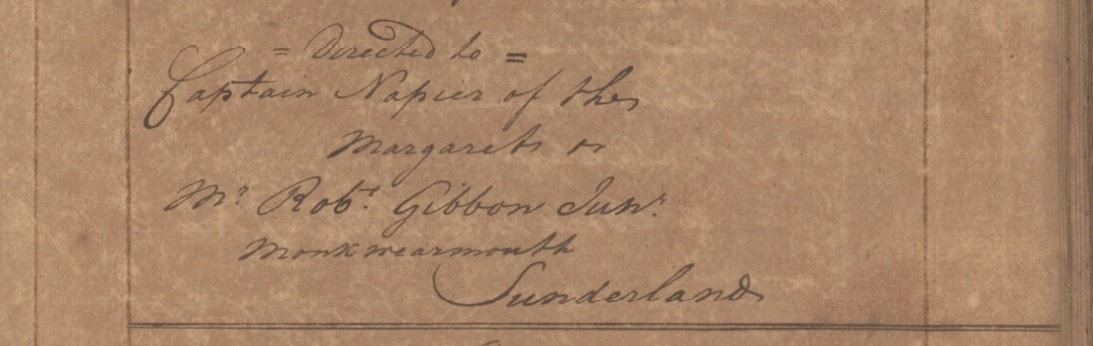 = Directed to =
Captain Napier of the
Margaret or
Mr. Robt. Gibbon Junr.
Monkwearmouth
Sunderland